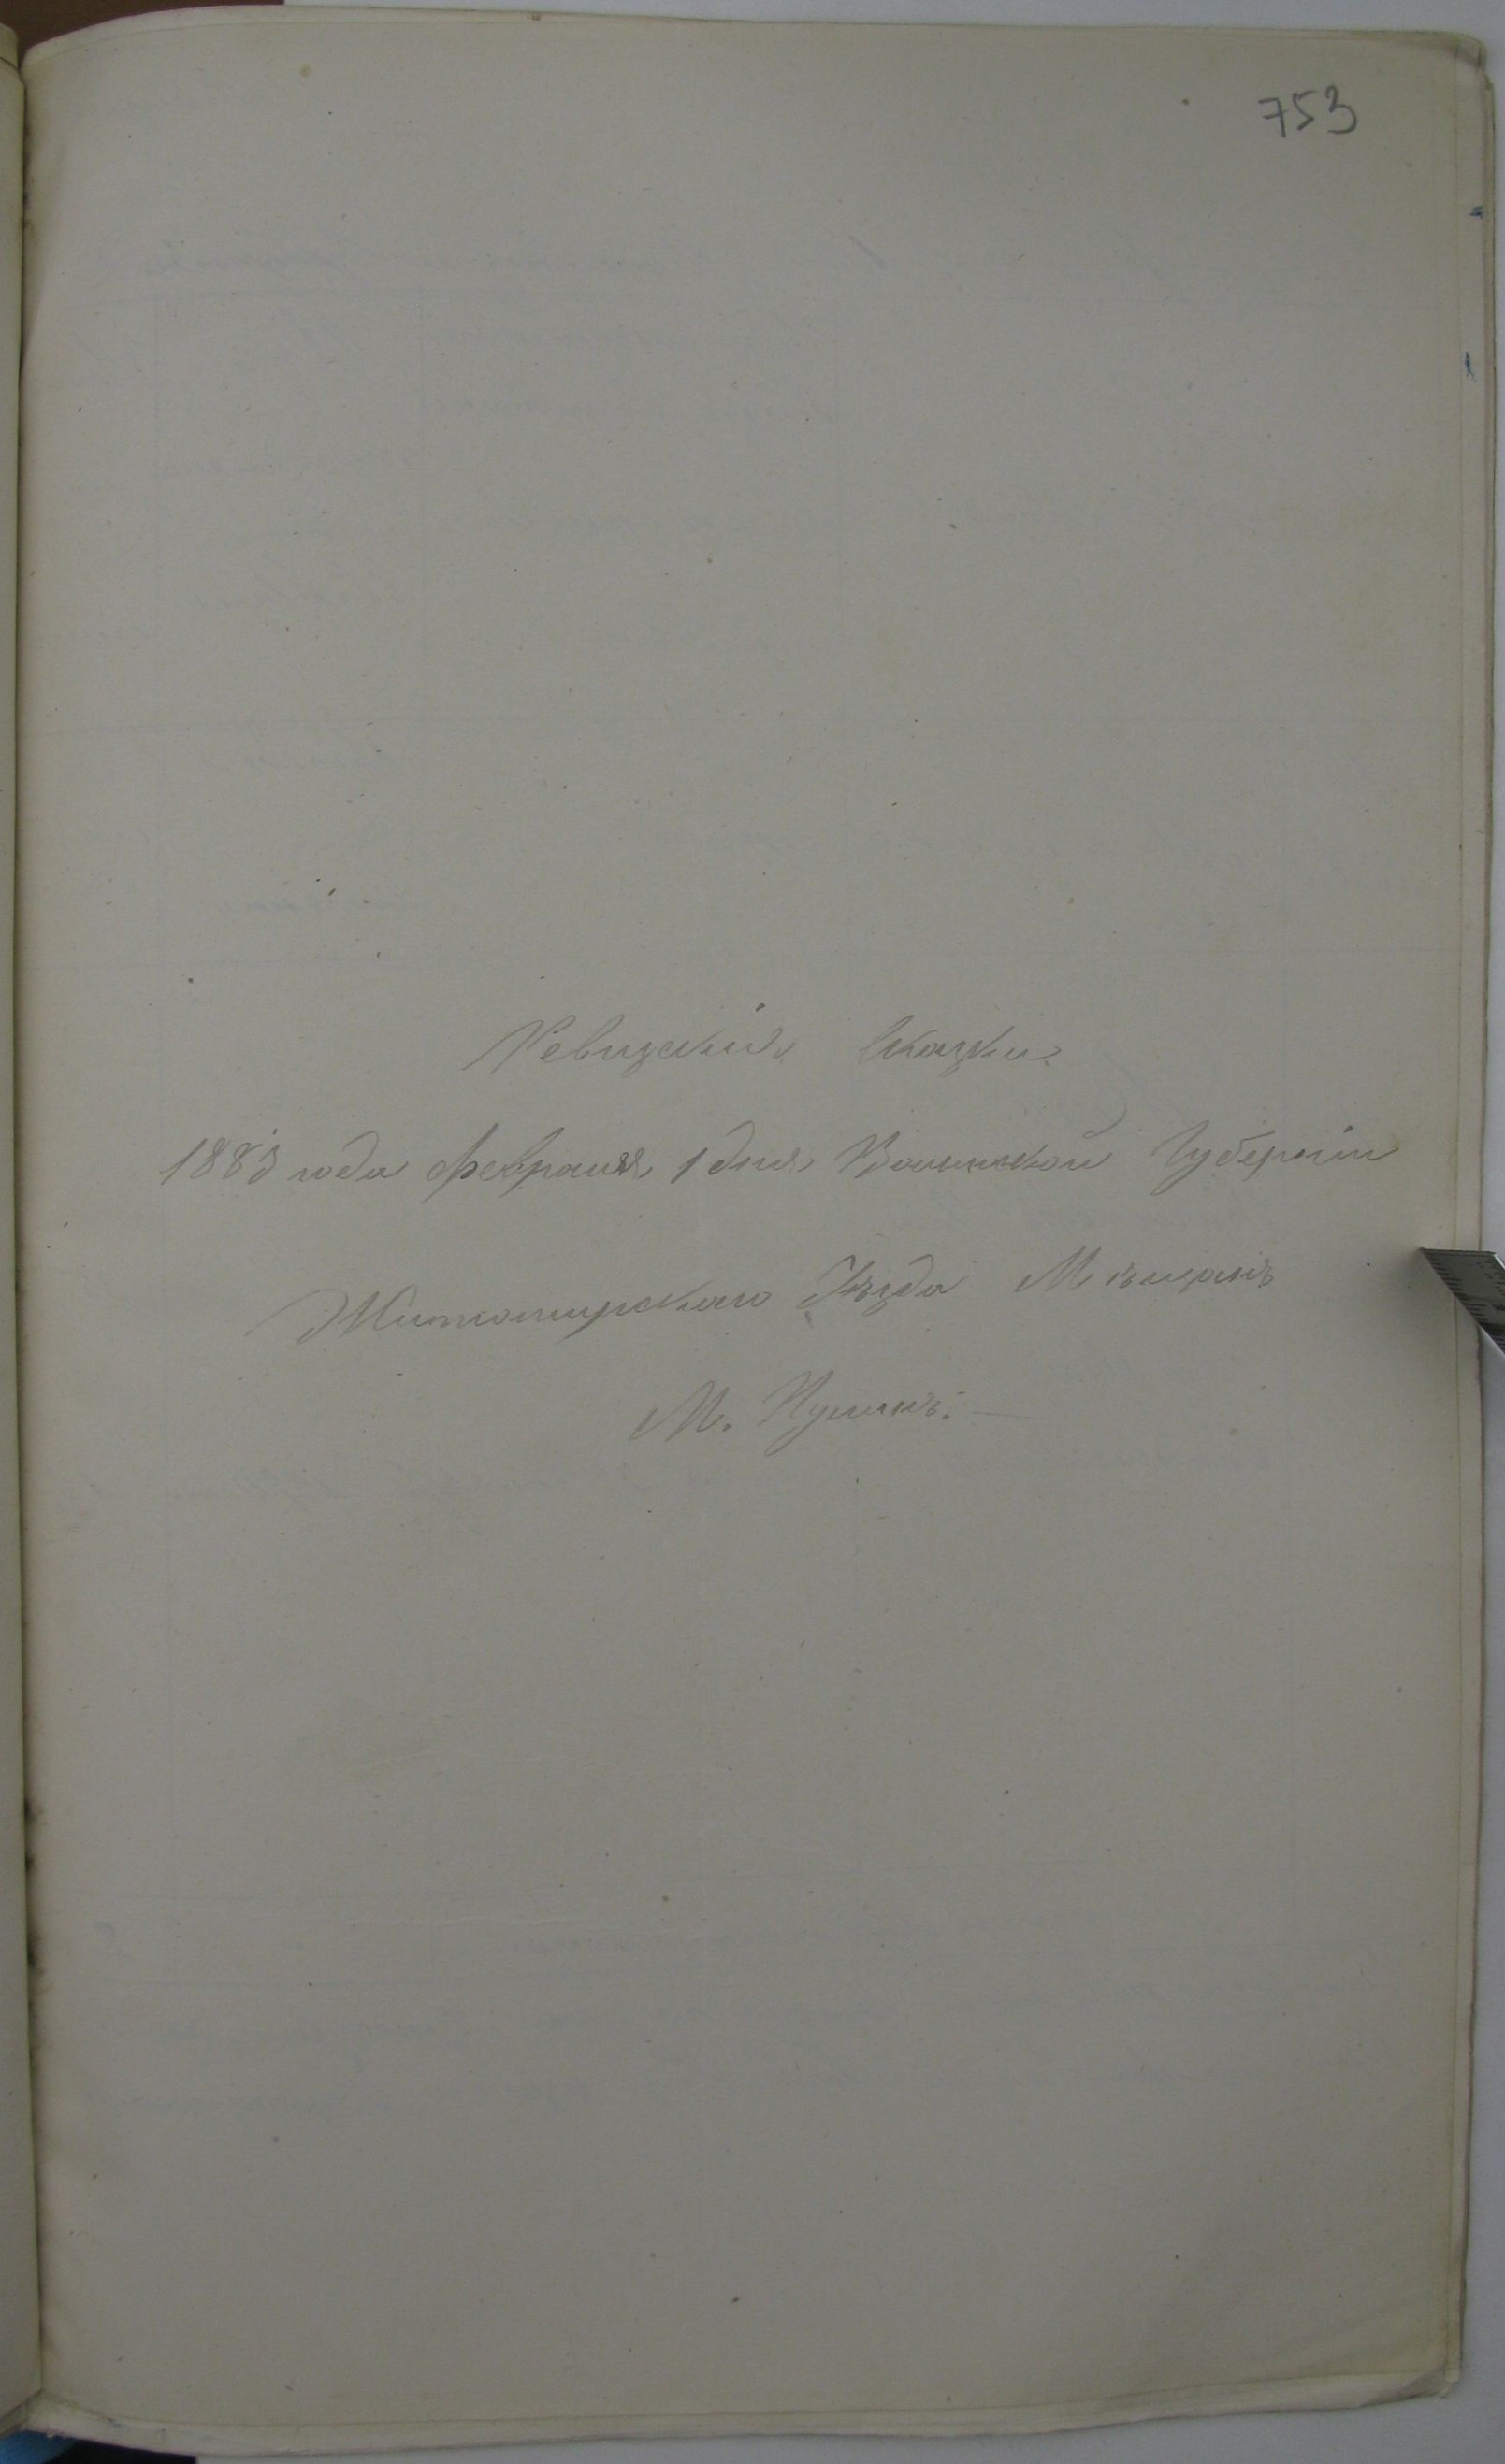 753
Ревизскія Сказки
1883 года февраля 1 дня Волынской Губерніи
Житомирскаго Уѣзда Мѣщанъ
М. Пулинъ.—